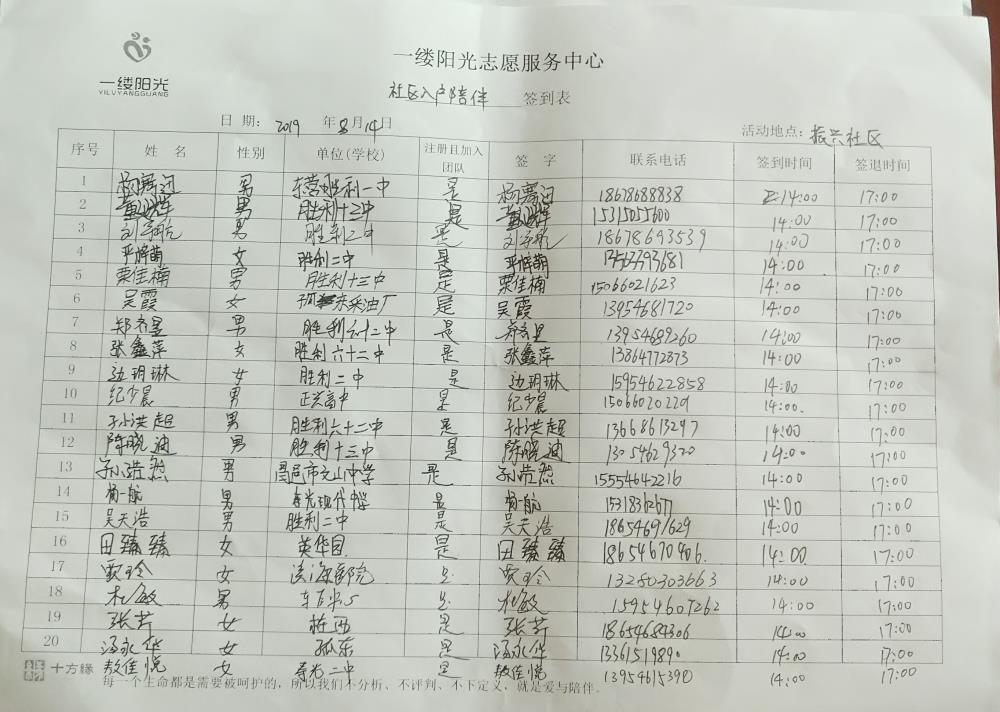 一缕阳光
YILVYANGGUANG
一缕阳光志愿服务中心
社区入户陪伴 签到表
日期: 2019 年 8 月 14 日 活动地点: 振兴社区
序号 姓名 性别 单位(学校) 注册且加入团队 签字 联系电话 签到时间 签退时间
1 男 胜利一中 是 18678688838 14:00 17:00
2 男 胜利十三中 是 15315055600 14:00 17:00
3 刘宇航 男 胜利二中 是 刘宇航 18678693539 14:00 17:00
4 女 胜利二中 是 14:00 17:00
5 栗佳楠 男 胜利十三中 是 栗佳楠 15066021623 14:00 17:00
6 吴霞 女 是 吴霞 13954681720 14:00 17:00
7 男 胜利六十二中 是 13954689260 14:00 17:00
8 张鑫萍 女 胜利六十二中 是 张鑫萍 13864772873 14:00 17:00
9 边玥琳 女 胜利二中 是 边玥琳 15954622858 14:00 17:00
10 纪少晨 男 正兴高中 是 纪少晨 15066020229 14:00. 17:00
11 孙洪起 男 胜利六十二中 是 孙洪起 13668613297 14:00 17:00
12 陈晓迪 男 胜利十三中 是 陈晓迪 13054629320 14:00 17:00
13 孙浩然 男 是 孙浩然 15554642216 14:00 17:00
14 男 是 14:00 17:00
15 吴天浩 男 胜利二中 是 吴天浩 18654691629 14:00 17:00
16 田臻臻 女 英华园 是 田臻臻 18654670406. 14:00 17:00
17 贾玲 女 是 贾玲 13280303663 14:00 17:00
18 杜敏 男 是 杜敏 15954607262 14:00 17:00
19 张芳 女 是 张芳 18654684306 14:00 17:00
20 汤永华 女 孤东 是 汤永华 13361519890 14:00 17:00
敖佳悦 女 寿光二中 是 敖佳悦 13954615390 14:00 17:00
十方缘
每一个生命都是需要被呵护的,所以我们不分析、不评判、不下定义,就是爱与陪伴。